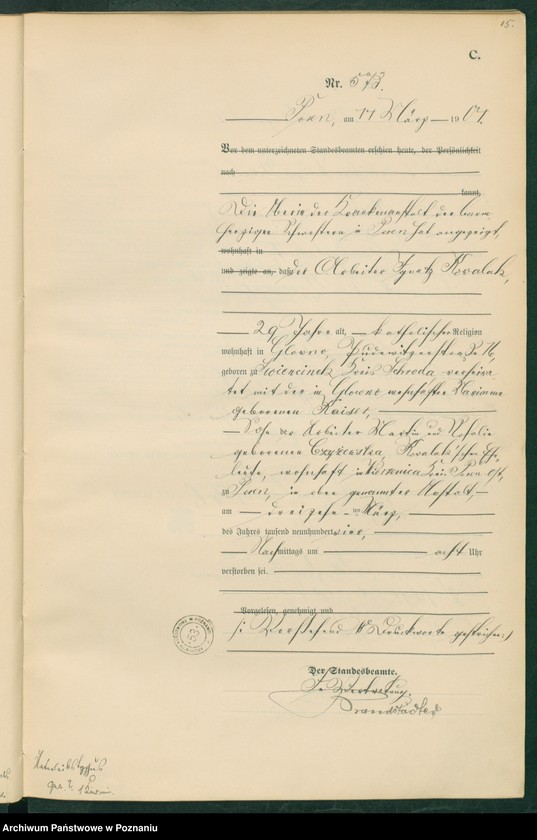 15.
C.
Nr. 573.
Posen, am 17 März 1904.
Vor dem unterzeichneten Standesbeamten erschien heute, der Persönlichkeit
nach
kannt,
Die Oberin der Krankenanstalt der barm
herzigen Schwestern in Posen hat angezeigt,
wohnhaft in
und zeigte an, daß der Arbeiter Ignatz Kowalak,
29 Jahre alt, katholischer Religion
wohnhaft in Glowno,
geboren zu Kreis Schroda, verheira
tet mit der in Glowno wohnhaften Marianna
geborenen Kaiser,
Sohn der Arbeiter Martin und Rosalie
geborenen Czyzewska, Kowalak'schen Ehe
leute, wohnhaft in Kreis Posen Ost,
zu Posen, in der genannten Anstalt,
am dreizehn ten März,
des Jahres tausend neunhundert vier,
Nachmittags um acht Uhr
verstorben sei.
Vorgelesen, genehmigt und
Vorstehend Druckworte gestrichen.
Der Standesbeamte.
In Vertretung.
Brandstädter
Unterleibstyphus
Archiwum Państwowe w Poznaniu